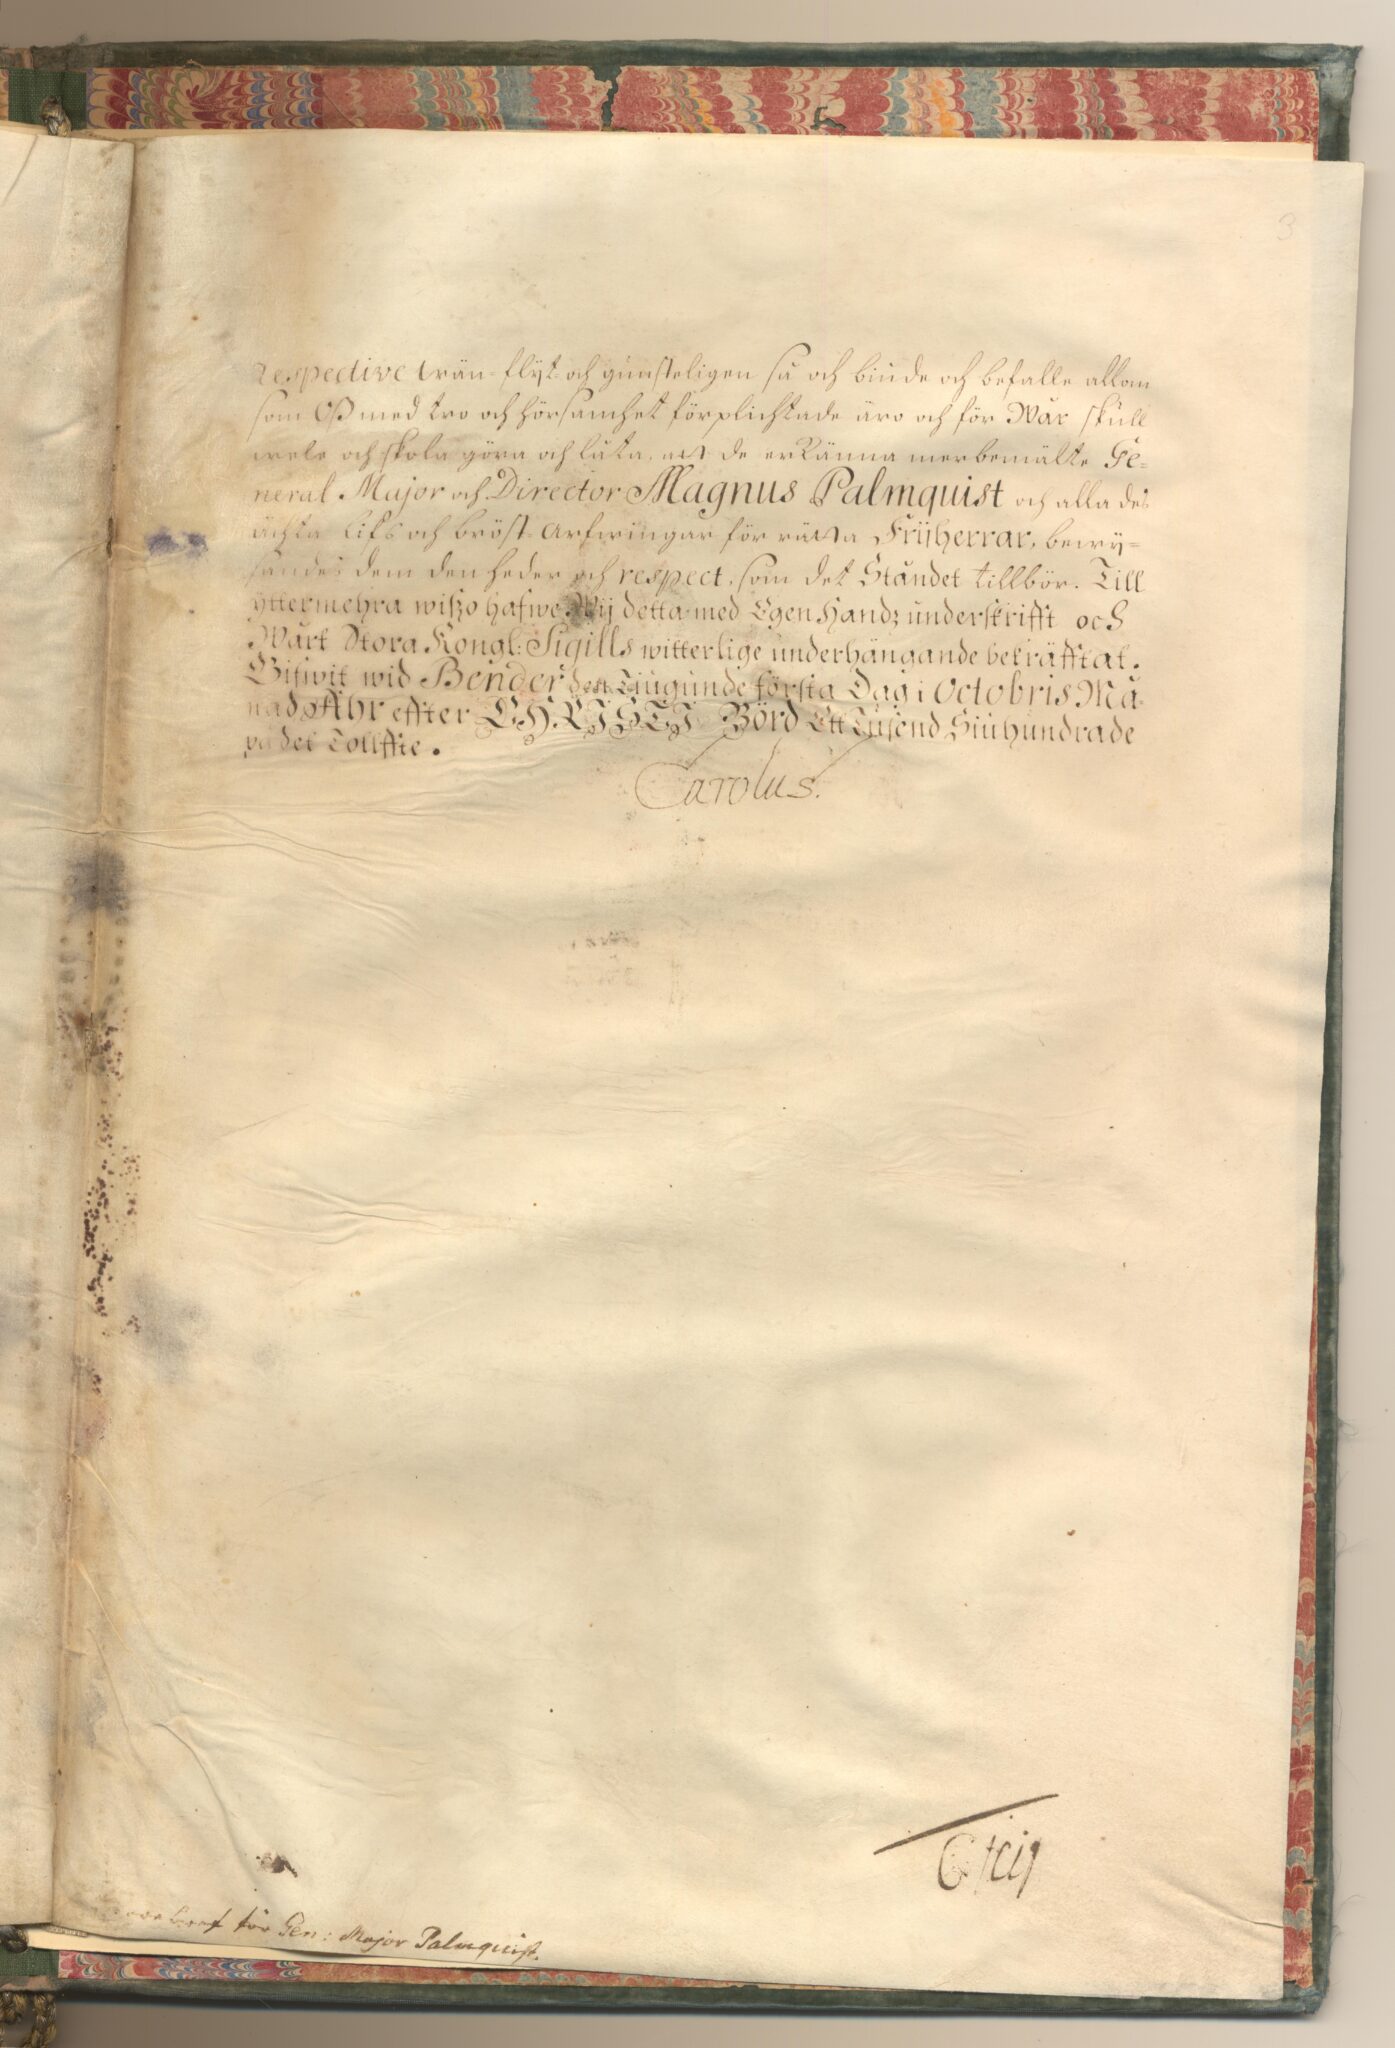 3
respective wän- flijt- och gunsteligen så och biude och befalle allom
som Oß med tro och hörsamhet förplichtade äro och för Wår skull
wele och skola göra och låta, att de erkänna merbemälte Ge-
neral Major och Director Magnus Palmquist och alla des
ächta lifs och bröst-arfwingar för rätta Frijherrar, bewij-
sandes dem den heder och respect, som det Ståndet tillbör. Till
yttermehra wißo hafwe Wij detta med Egen Handz underskrifft och
Wårt Stora Kongl: Sigills witterlige underhängande bekräfftat.
Gifwit wid Bender den Tiugunde första Dag i Octobris Må-
nad Åhr effter CHRISTI Börd Ett Tusend Siuhundrade
på det Tollffte.
Carolus.
för Gen: Major Palmquist.